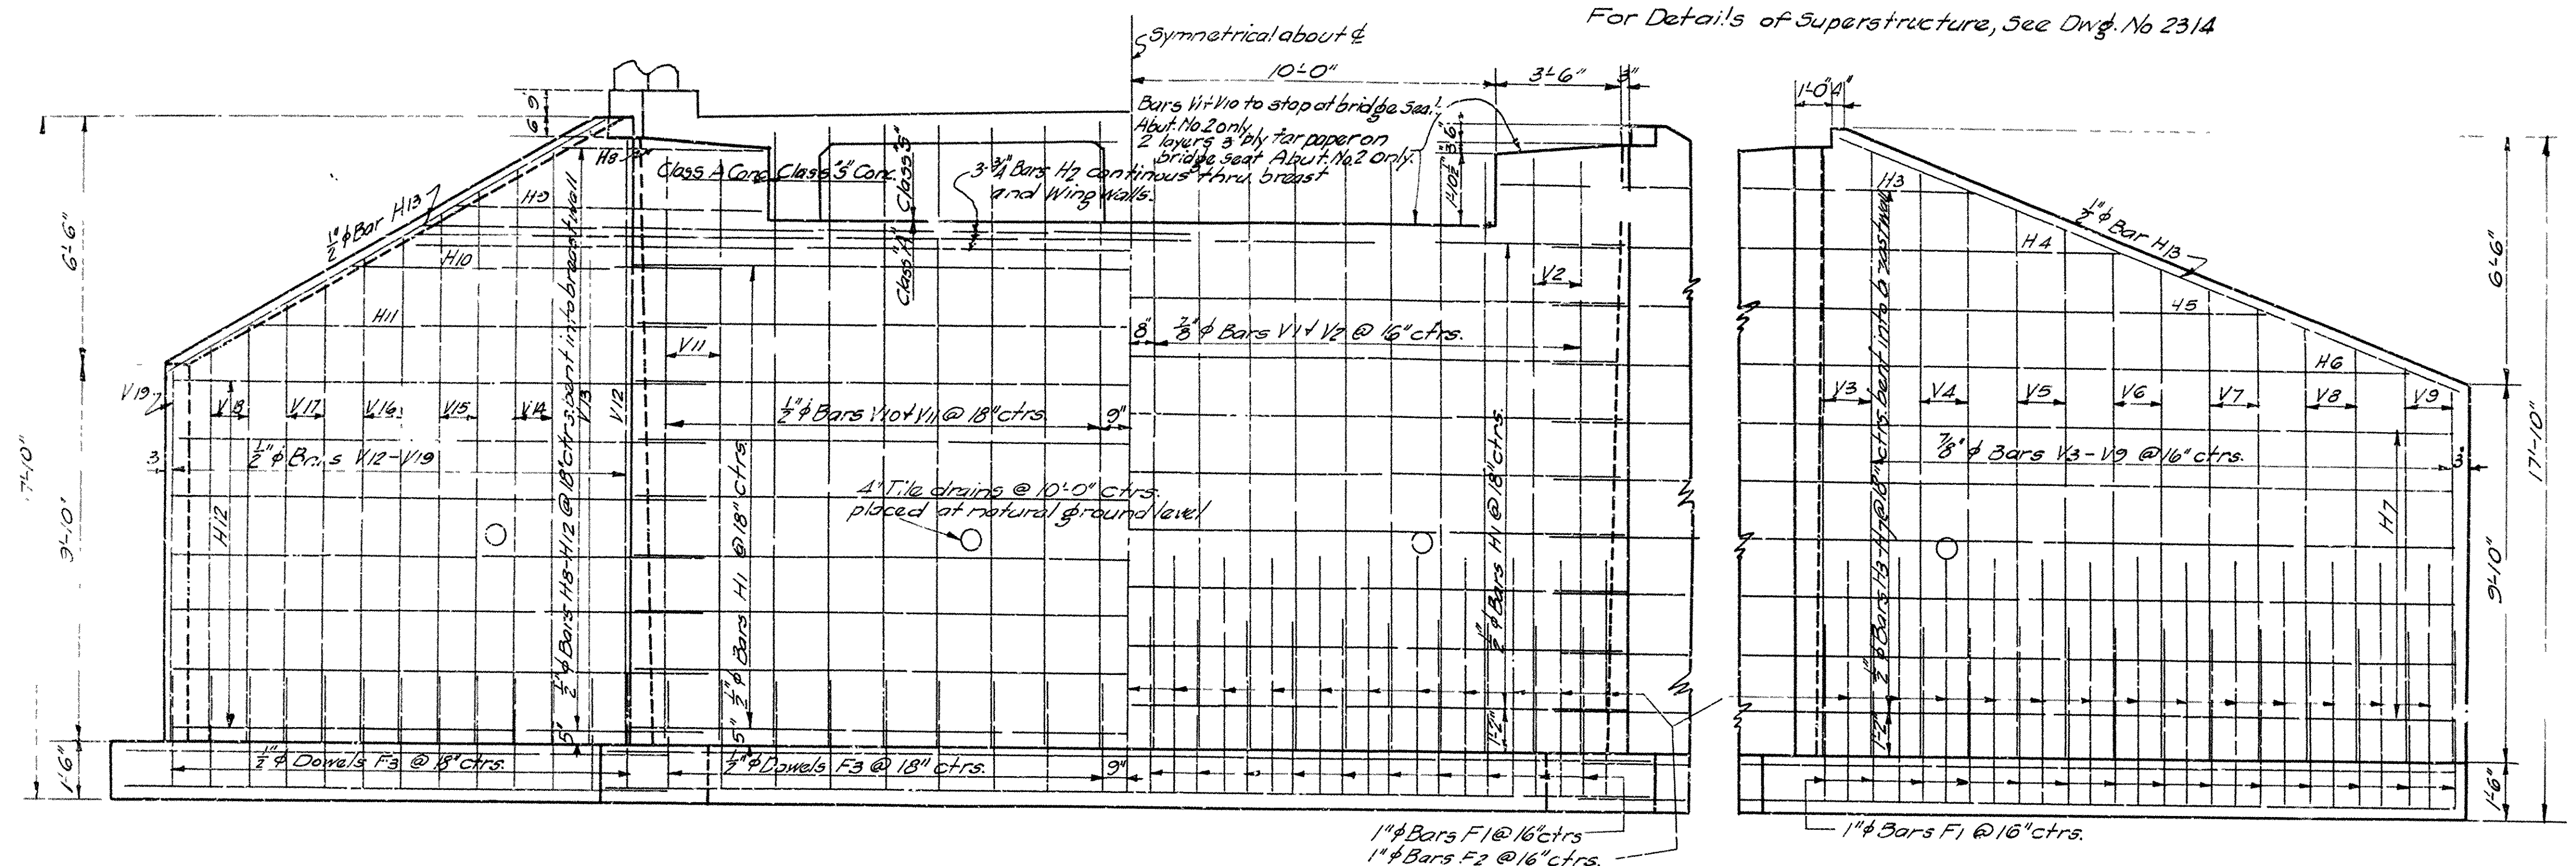 For Details of Superstructure, See Dwg. No 2314
Symmetrical about ℄
10'-0"
3'-6"
3"
1'-0"
4"
9
6
Bars V1 & V10 to stop at bridge seat
Abut. No 2 only
2 layers 3 ply tar paper on
bridge seat Abut. No. 2 only.
3
6
1'-10½"
H8
Class A Conc.
Class "S" Conc.
Class "S"
Class "A"
3-¾" Bars H2 continous thru breast
and Wing Walls.
½"ϕ Bar H13
H9
H10
H11
6'-6"
9'-10"
1'-6"
7'-10"
V19
V18
V17
V16
V15
V14
V13
V12
V11
V2
3
H12
½"ϕ Bars V12-V19
½"ϕ Bars H8-H12 @ 18" ctrs. bent into breast wall
5"
½"ϕ Bars H1 @ 18" ctrs.
5"
½"ϕ Bars V10 & V11 @ 18" ctrs.
9"
8"
⅞"ϕ Bars V1 & V2 @ 16" ctrs.
4" Tile drains @ 10'-0" ctrs.
placed at natural ground level
½"ϕ Bars H1 @ 18" ctrs.
1'-2"
½"ϕ Dowels F3 @ 18" ctrs.
½"ϕ Dowels F3 @ 18" ctrs.
9"
1"ϕ Bars F1 @ 16" ctrs
1"ϕ Bars F2 @ 16" ctrs.
H3
H4
45
H6
H7
½"ϕ Bar H13
V3
V4
V5
V6
V7
V8
V9
⅞"ϕ Bars V3-V9 @ 16" ctrs.
3"
½"ϕ Bars H3-H7 @ 18" ctrs bent into
1'-2"
1"ϕ Bars F1 @ 16" ctrs.
6'-6"
9'-10"
1'-6"
17'-10"